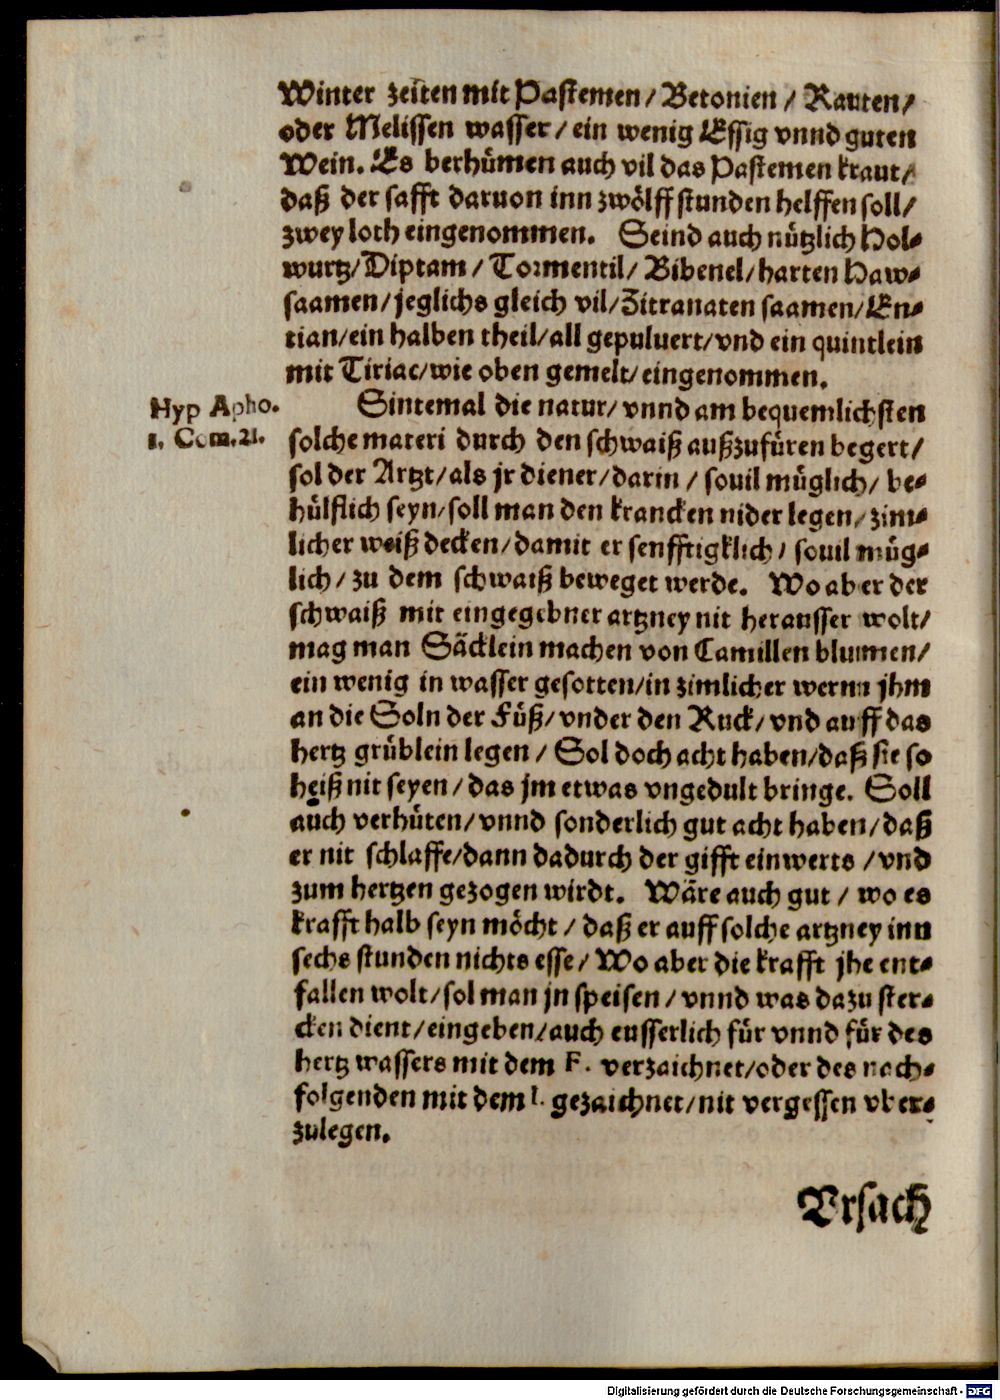 Winter zeiten mit Pastemen / Betonien / Rauten /
oder Melissen wasser / ein wenig Essig vnnd guten
Wein. Es berhümen auch vil das Pastemen kraut /
daß der safft daruon inn zwölff stunden helffen soll /
zwey loth eingenommen. Seind auch nützlich Hol-
wurtz / Diptam / Tormentil / Bibenel / harten Haw-
saamen / jeglichs gleich vil / Zitranaten saamen / En-
tian / ein halben theil / all gepuluert / vnd ein quintlein
mit Tiriac / wie oben gemelt / eingenommen.
Hyp Apho.
1. Com. 21.
Sintemal die natur / vnnd am bequemlichsten
solche materi durch den schwaiß außzufüren begert /
sol der Artzt / als jr diener / darin / souil müglich / be-
hülflich seyn / soll man den krancken nider legen / zim-
licher weiß decken / damit er senfftigklich / souil müg-
lich / zu dem schwaiß beweget werde. Wo aber der
schwaiß mit eingegebner artzney nit herausser wolt /
mag man Säcklein machen von Camillen blumen /
ein wenig in wasser gesotten / in zimlicher werm jhm
an die Soln der Füß / vnder den Ruck / vnd auff das
hertz grüblein legen / Sol doch acht haben / daß sie so
heiß nit seyen / das jm etwas vngedult bringe. Soll
auch verhüten / vnnd sonderlich gut acht haben / daß
er nit schlaffe / dann dadurch der gifft einwerts / vnd
zum hertzen gezogen wirdt. Wäre auch gut / wo es
krafft halb seyn möcht / daß er auff solche artzney inn
sechs stunden nichts esse / Wo aber die krafft jhe ent-
fallen wolt / sol man jn speisen / vnnd was dazu ster-
cken dient / eingeben / auch eusserlich für vnnd für des
hertz wassers mit dem F. verzaichnet / oder des nach-
folgenden mit dem I. gezaichnet / nit vergessen vber-
zulegen.
Vrsach
Digitalisierung gefördert durch die Deutsche Forschungsgemeinschaft - DFG